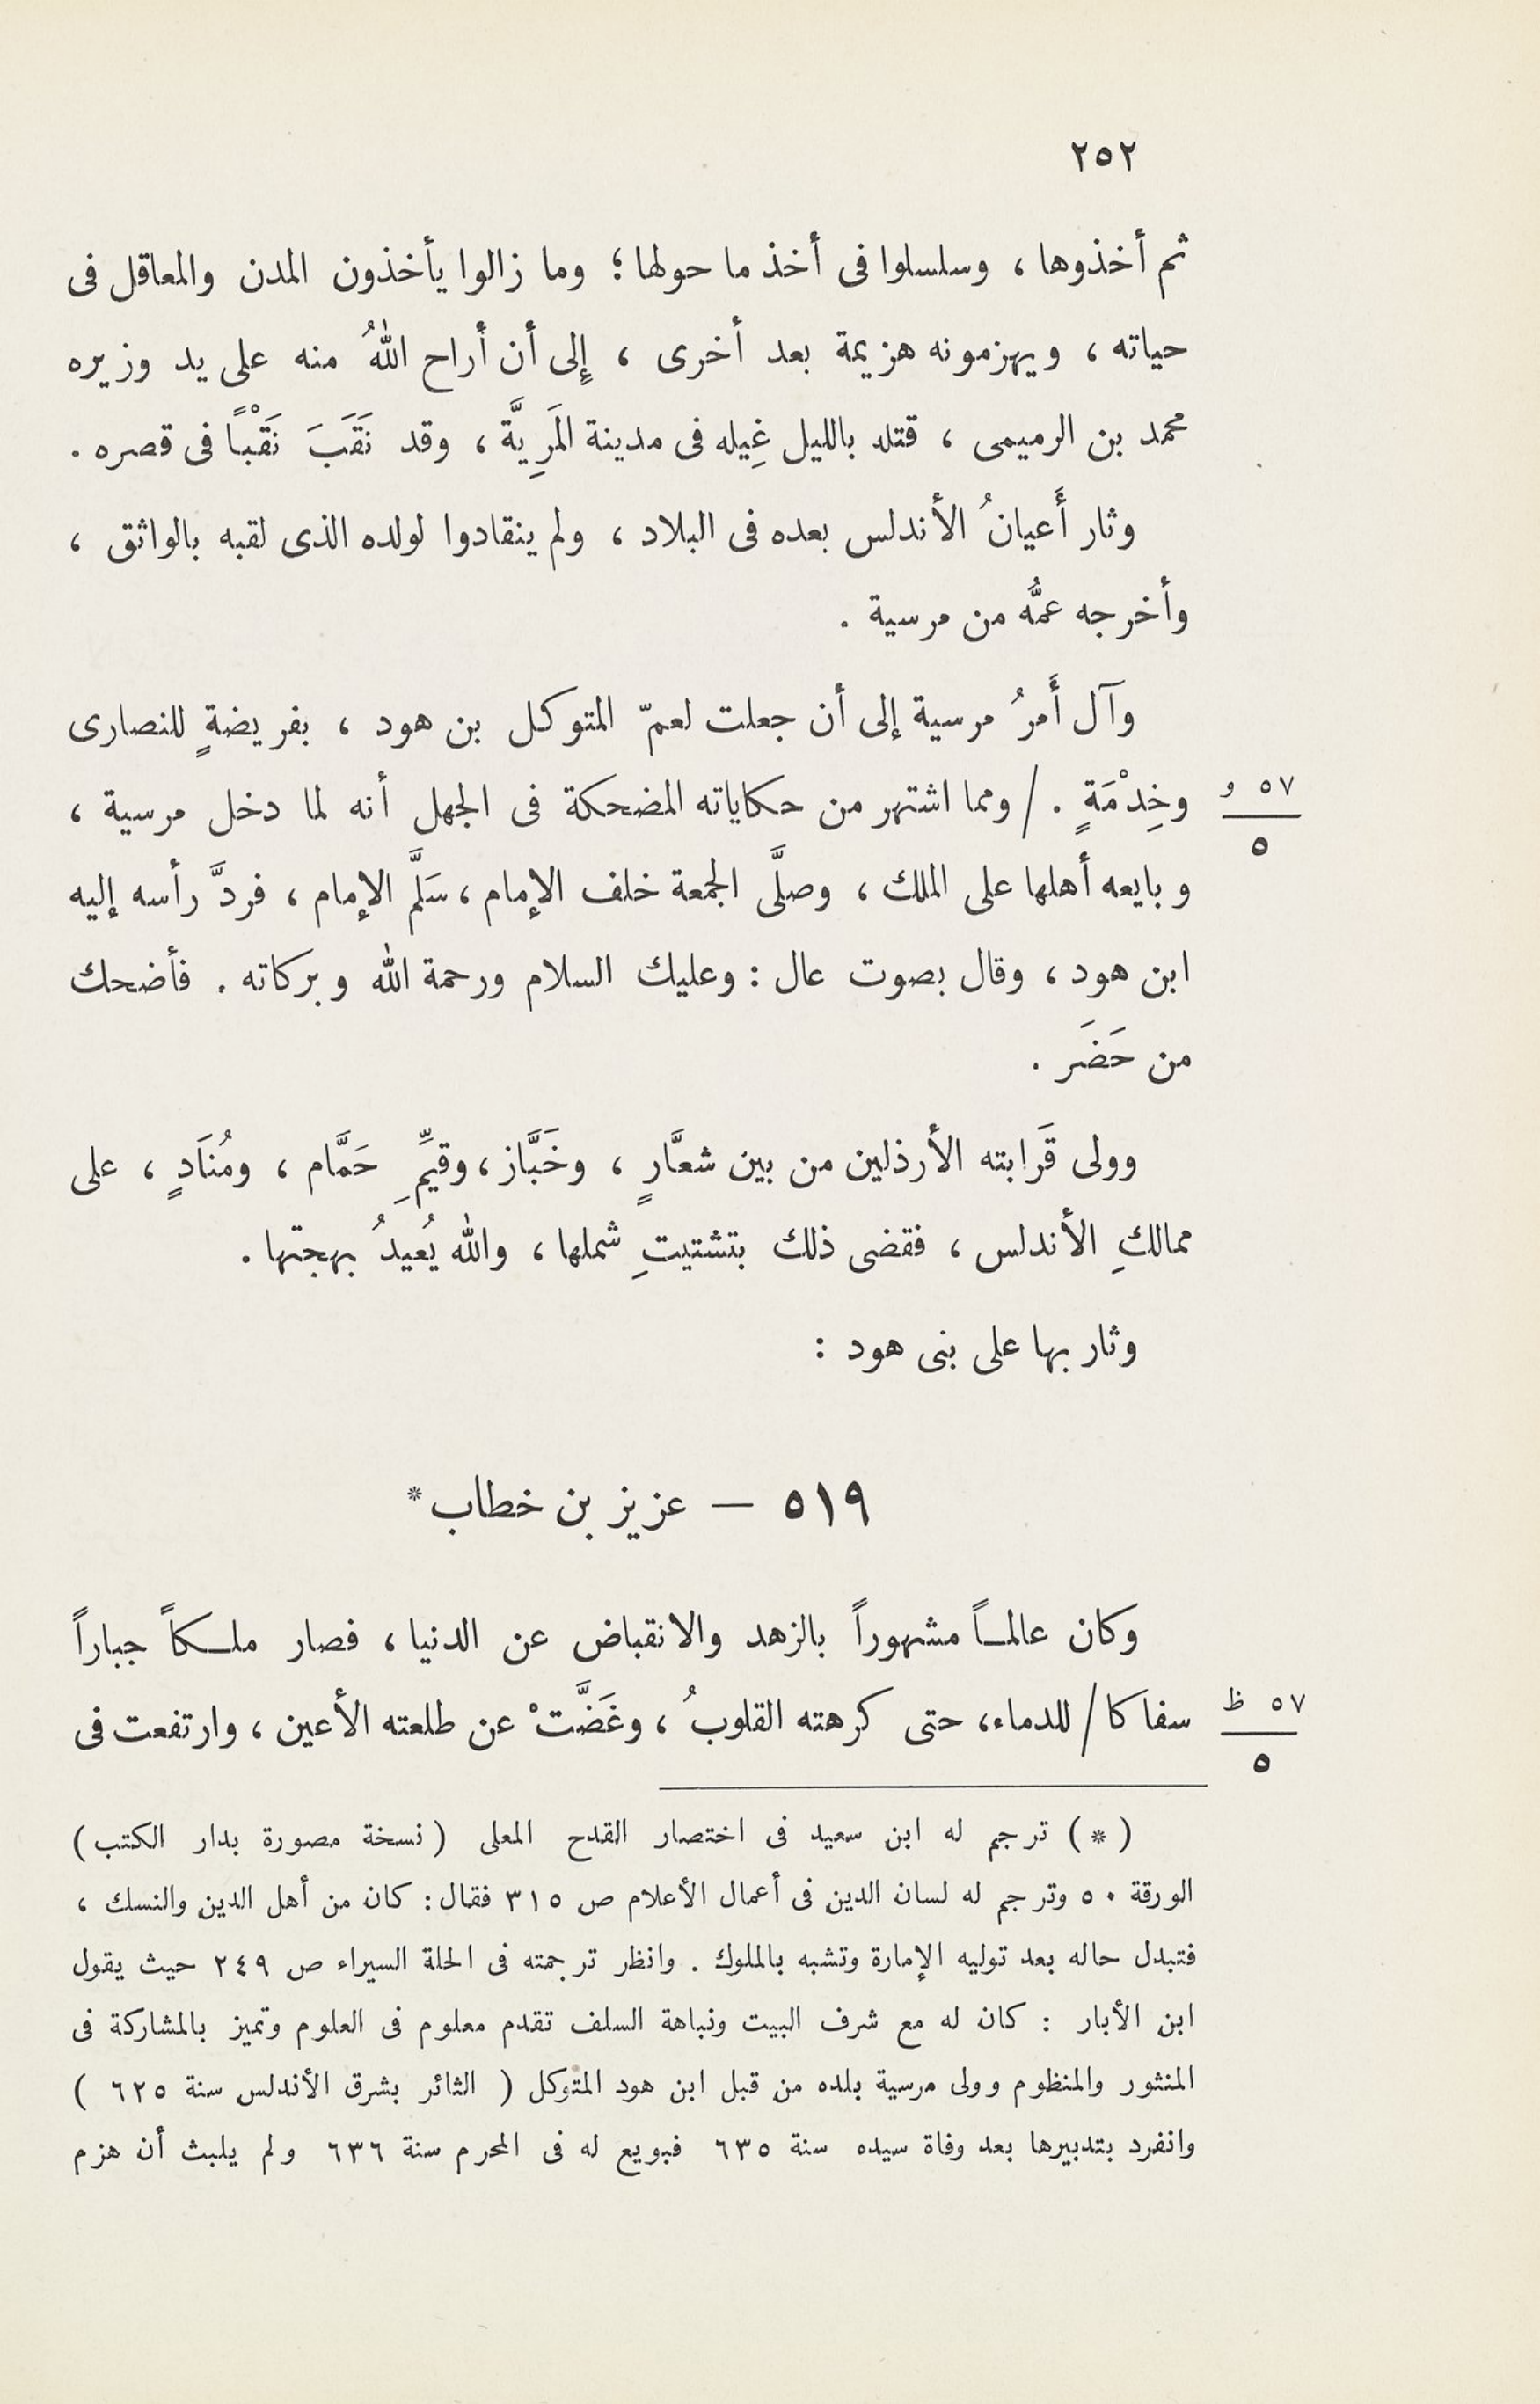 ٢٥٢
ثم أخذوها ، وسلسلوا فى أخذ ما حولها ؛ وما زالوا يأخذون المدن والمعاقل فى
حياته ، ويهزمونه هزيمة بعد أخرى ، إِلى أن أراح اللهُ منه على يد وزيره
محمد بن الرميمى ، قتله بالليل غِيله فى مدينة المَرِيَّة ، وقد نَقَبَ نَقْباً فى قصره .
وثار أَعيانُ الأندلس بعده فى البلاد ، ولم ينقادوا لولده الذى لقبه بالواثق ،
وأخرجه عمُّه من مرسية .
وآل أَمرُ مرسية إلى أن جعلت لعمّ المتوكل بن هود ، بفريضةٍ للنصارى
وخِدْمَةٍ . / ومما اشتهر من حكاياته المضحكة فى الجهل أنه لما دخل مرسية ،
٥٧ و
٥
وبايعه أهلها على الملك ، وصلَّى الجمعة خلف الإمام ، سَلَّم الإمام ، فردَّ رأسه إليه
ابن هود ، وقال بصوت عال : وعليك السلام ورحمة الله وبركاته . فأضحك
من حَضَر .
وولى قَرابته الأرذلين من بين شعَّارٍ ، وخَبَّاز ، وقيِّمِ حَمَّام ، ومُنَادٍ ، على
ممالكِ الأندلس ، فقضى ذلك بتشتيتِ شملها ، والله يُعيدُ بهجتها .
وثار بها على بنى هود :
٥١٩ — عزيز بن خطاب *
وكان عالمـاً مشهوراً بالزهد والانقباض عن الدنيا ، فصار ملـكاً جباراً
سفاكا / للدماء، حتى كرهته القلوبُ ، وغَضَّتْ عن طلعته الأعين ، وارتفعت فى
٥٧ ظ
٥
( * ) ترجم له ابن سعيد فى اختصار القدح المعلى ( نسخة مصورة بدار الكتب )
الورقة ٥٠ وترجم له لسان الدين فى أعمال الأعلام ص ٣١٥ فقال : كان من أهل الدين والنسك ،
فتبدل حاله بعد توليه الإمارة وتشبه بالملوك . وانظر ترجمته فى الحلة السيراء ص ٢٤٩ حيث يقول
ابن الأبار : كان له مع شرف البيت ونباهة السلف تقدم معلوم فى العلوم وتميز بالمشاركة فى
المنثور والمنظوم وولى مرسية بلده من قبل ابن هود المتوكل ( الثائر بشرق الأندلس سنة ٦٢٥ )
وانفرد بتدبيرها بعد وفاة سيده سنة ٦٣٥ فبويع له فى المحرم سنة ٦٣٦ ولم يلبث أن هزم